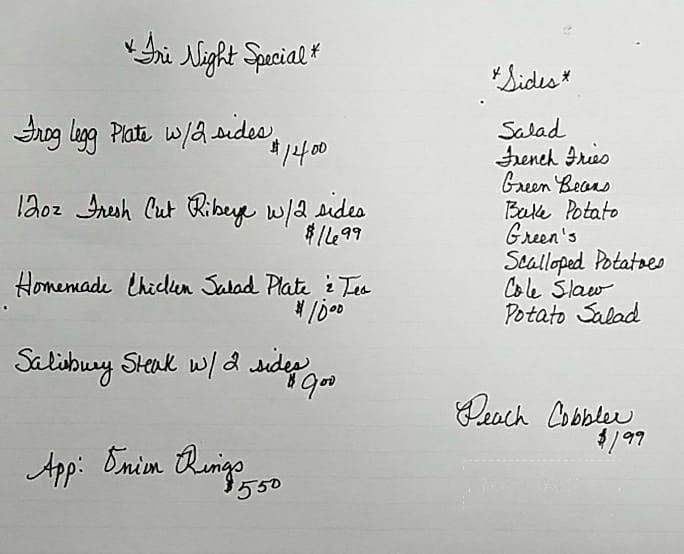 *Fri Night Special*
Frog legg Plate w/2 sides
$14.00
12oz Fresh Cut Ribeye w/2 sides
$16.99
Homemade Chicken Salad Plate & Tea
$10.00
Salisbury Steak w/ 2 sides
$9.00
App: Onion Rings
$5.50
*Sides*
Salad
French Fries
Green Beans
Bake Potato
Green's
Scalloped Potatoes
Cole Slaw
Potato Salad
Peach Cobbler
$1.99